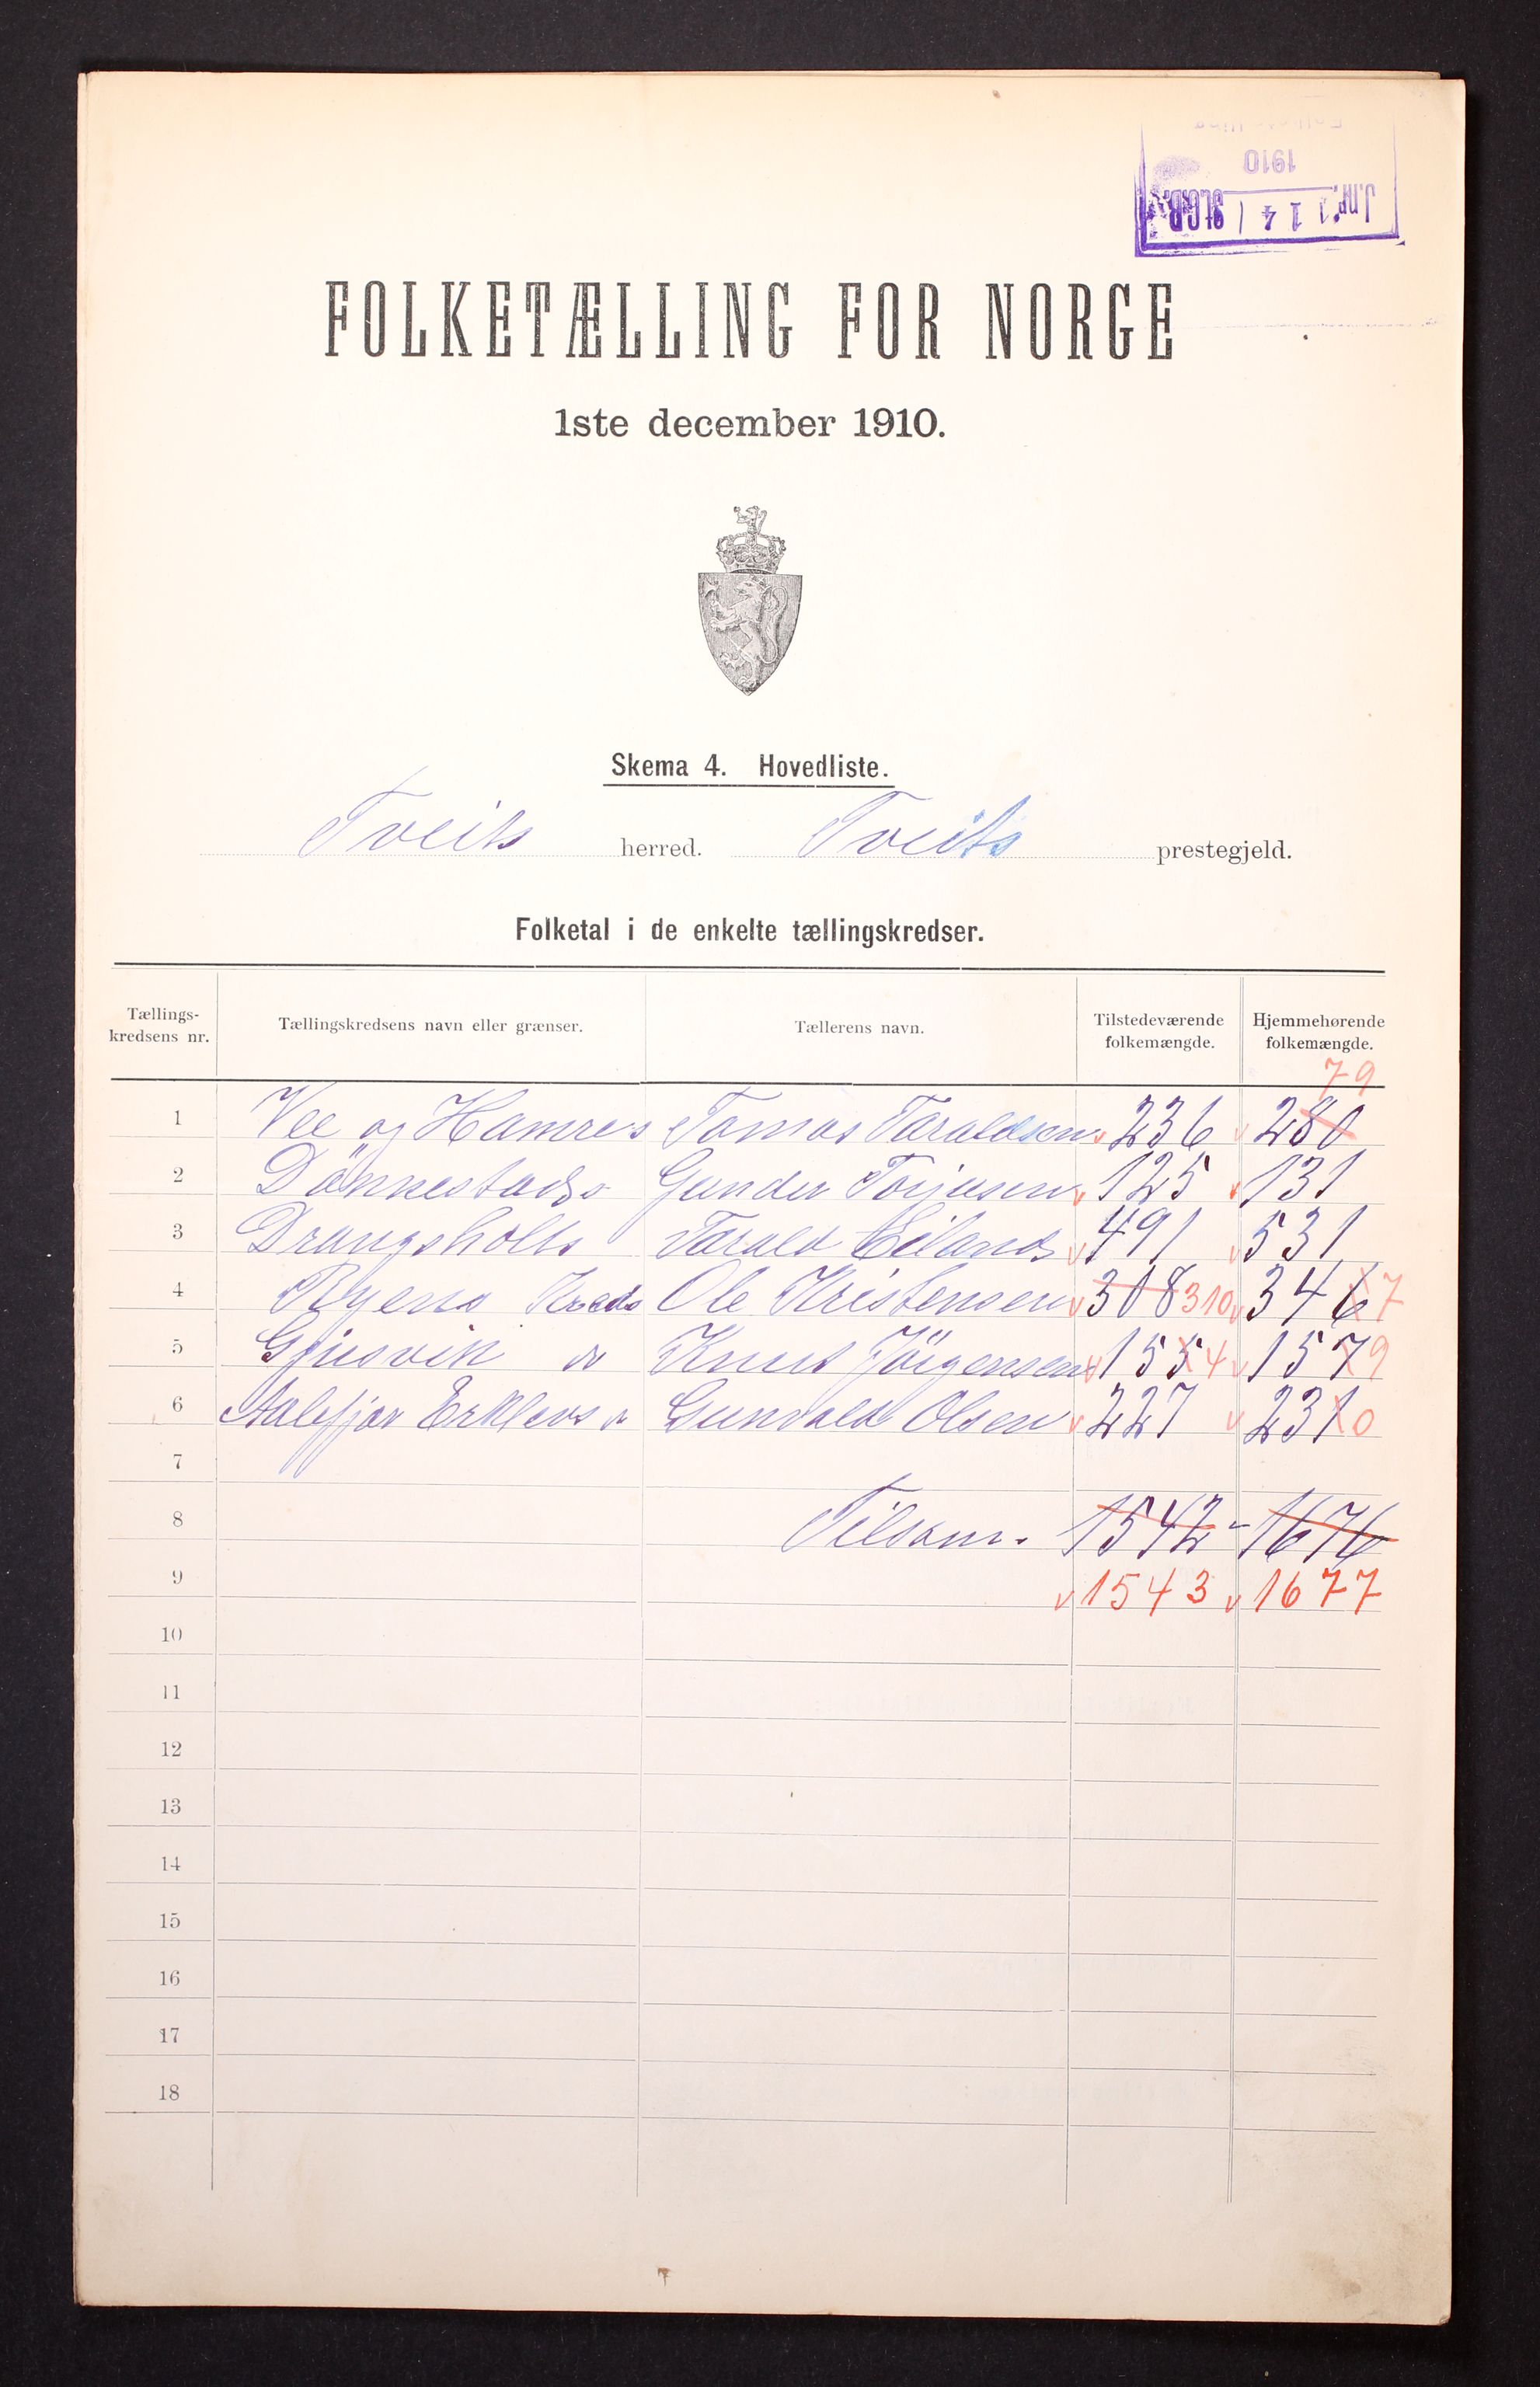 1910
J.nr. 114 / St.C.B.
FOLKETÆLLING FOR NORGE
1ste december 1910.
Skema 4. Hovedliste.
Tveits herred. Tveits prestegjeld.
Folketal i de enkelte tællingskredser.
Tællings-kredsens nr. Tællingskredsens navn eller grænser. Tællerens navn. Tilstedeværende folkemængde. Hjemmehørende folkemængde.
79
1 Vee og Hamres Tomas Taraldsen 236 280
2 Dönnestads Gunder Torjusen 125 131
3 Drangsholts Tarald Eilands 491 531
4 Ryens Kreds Ole Kristensen 308 310 346 7
5 Gjusvik Knut Jörgensen 155 4 157 9
6 Aalefjær Erklevs Gunvald Olsen 227 231 0
7
8 Tilsam. 1542 - 1676
9 1543 1677
10
11
12
13
14
15
16
17
18